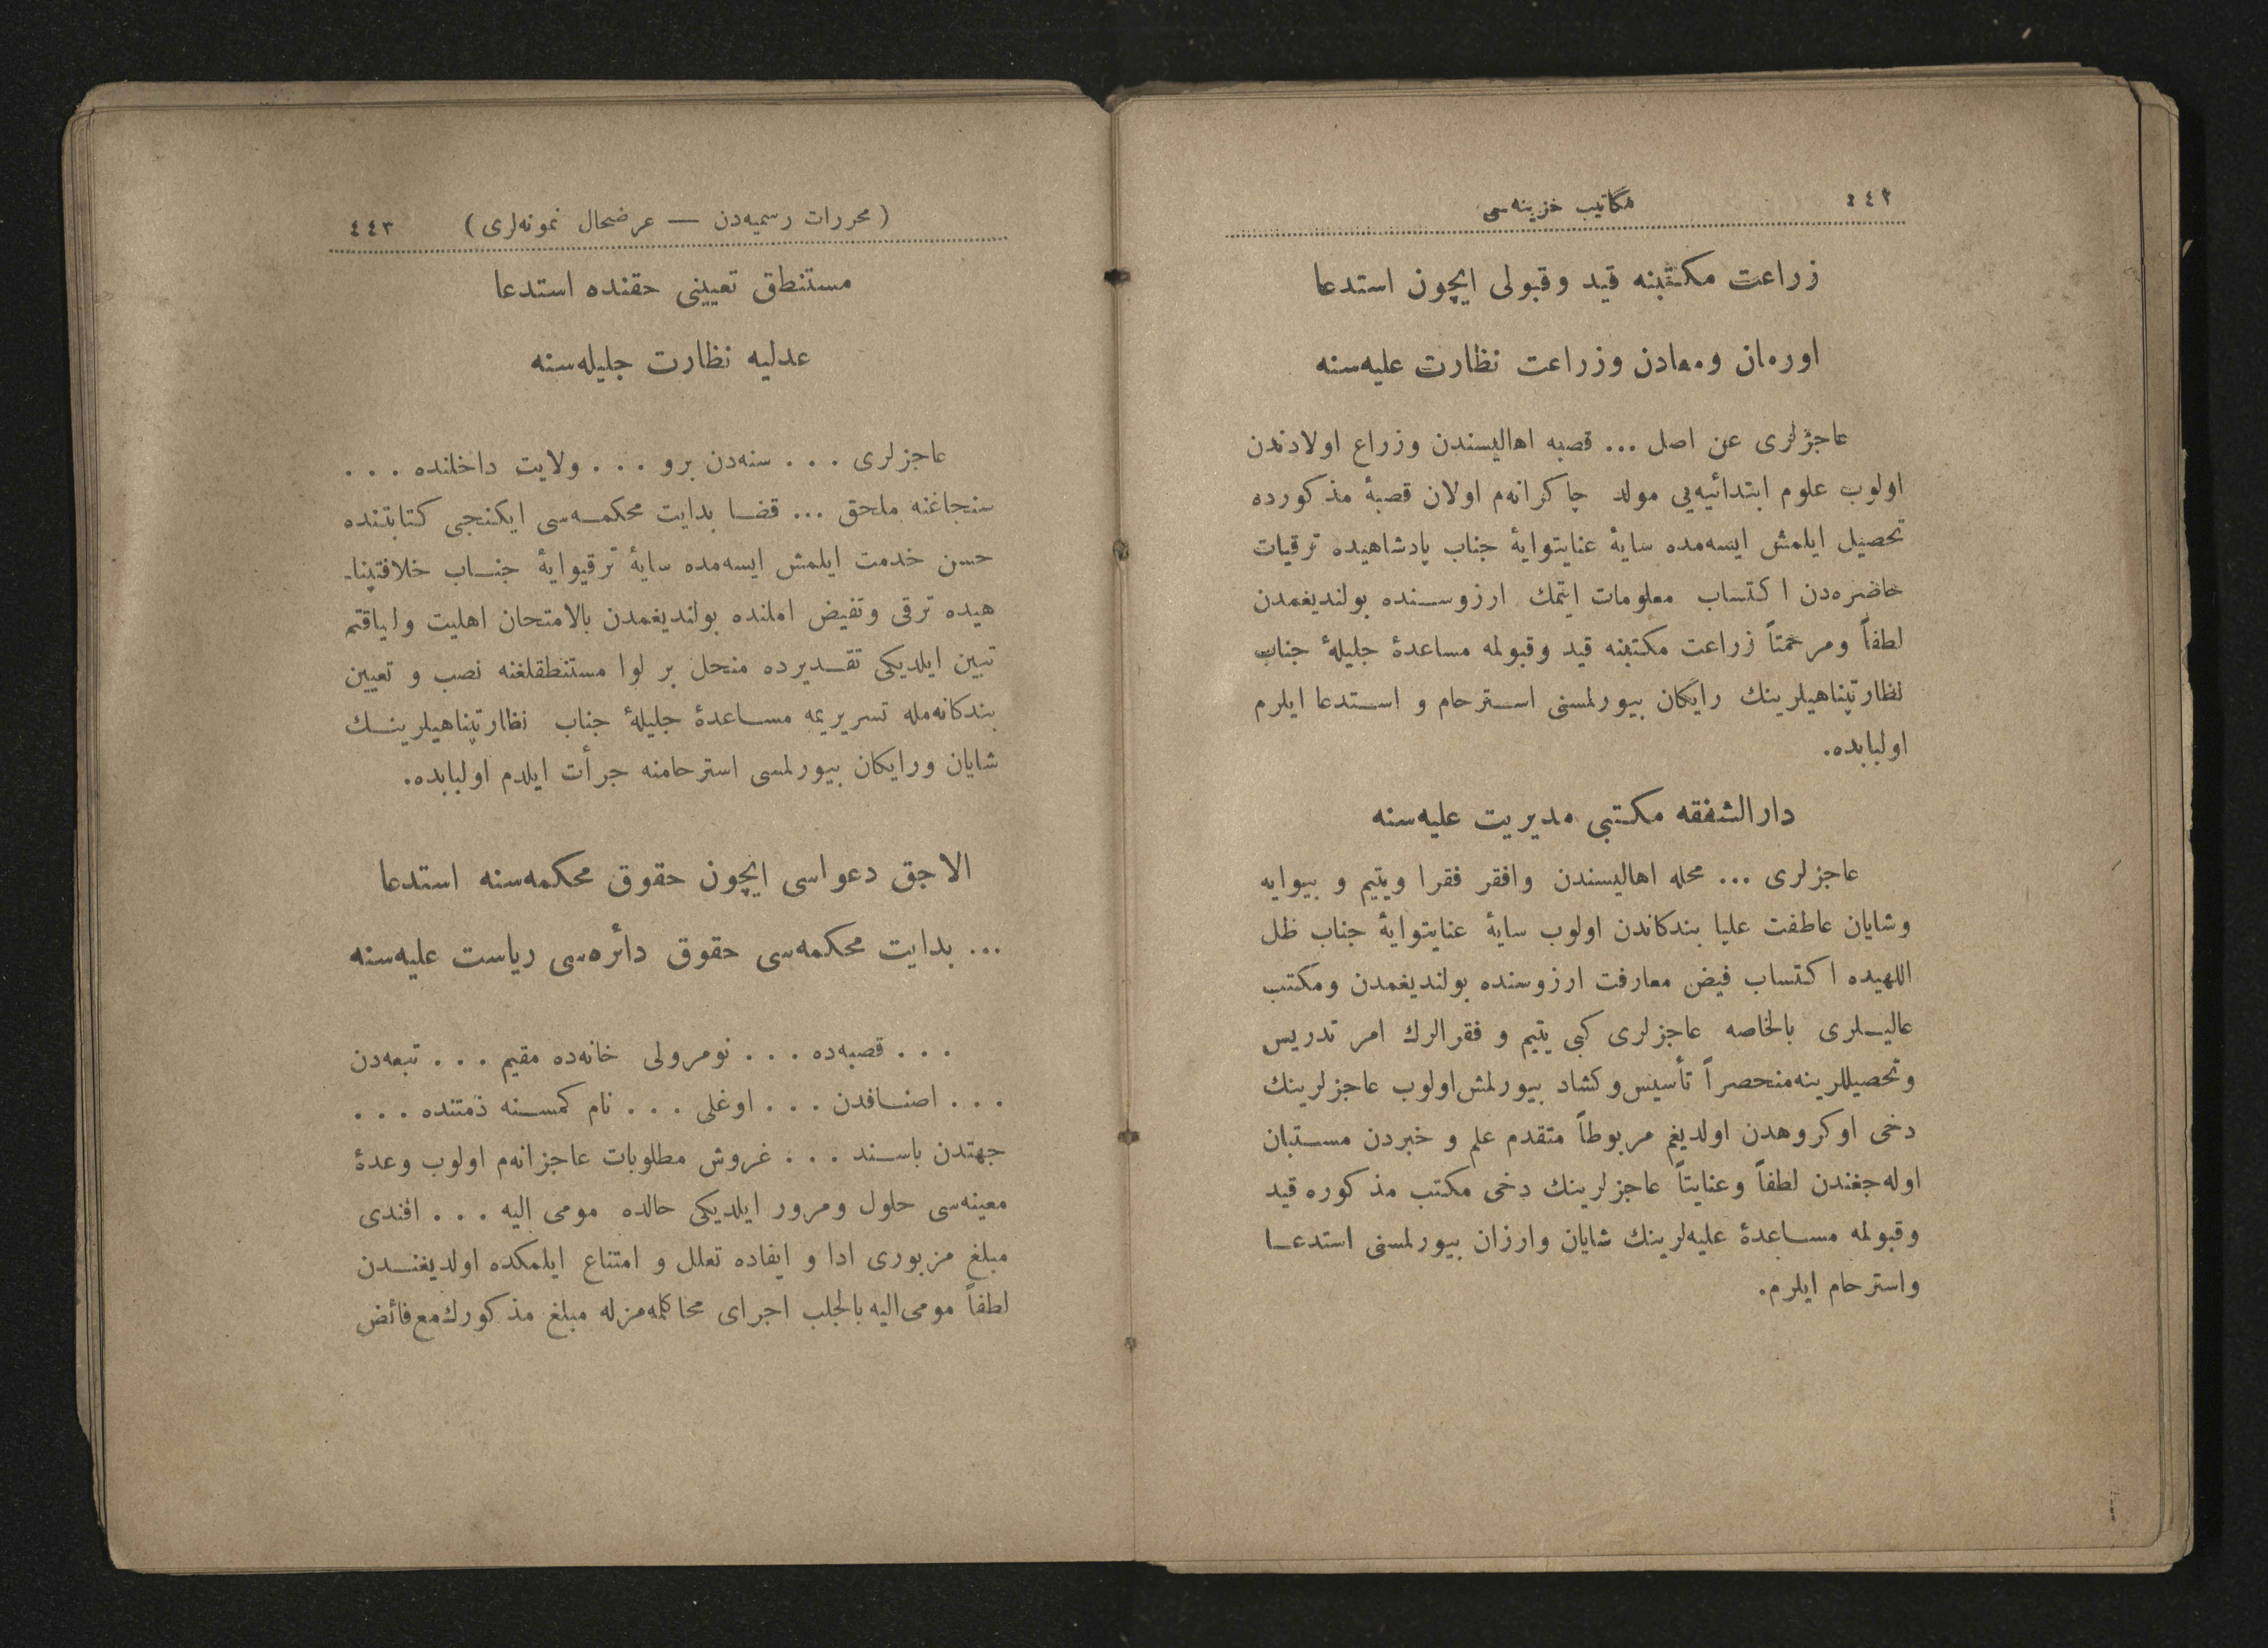 ٤٤٢ مكاتيب خزينه‌سی
زراعت مكتبنه قيد وقبولی ايچون استدعا
اورمان ومعادن وزراعت نظارت عليه‌سنه
عاجزلری عن اصل ... قصبه اهاليسندن وزراع اولادندن
اولوب علوم ابتدائيه‌يی مولد چاكرانه‌م اولان قصبۀ مذكورده
تحصيل ايلمش ايسه‌مده سايۀ عنايتوايۀ جناب پادشاهيده ترقيات
حاضره‌دن اكتساب معلومات ايتمك ارزوسنده بولنديغمدن
لطفاً ومرحمتاً زراعت مكتبنه قيد وقبولمه مساعدۀ جليلۀ جناب
نظارتپناهيلرينك رايگان بيورلمسنی استرحام و استدعا ايلرم
اولبابده.
دارالشفقه مكتبی مديريت عليه‌سنه
عاجزلری ... محله اهاليسندن وافقر فقرا ويتيم و بيوايه
وشايان عاطفت عليا بندكاندن اولوب سايۀ عنايتوايۀ جناب ظل
اللهيده اكتساب فيض معارفت ارزوسنده بولنديغمدن ومكتب
عاليلری بالخاصه عاجزلری كبی يتيم و فقرالرك امر تدريس
وتحصيللرينه منحصراً تأسيس وكشاد بيورلمش اولوب عاجزلرينك
دخی اوكروهدن اولديغم مربوطاً متقدم علم و خبردن مستبان
اوله‌جغندن لطفاً وعنايتاً عاجزلرينك دخی مكتب مذكوره قيد
وقبولمه مساعدۀ عليه‌لرينك شايان وارزان بيورلمسنی استدعا
واسترحام ايلرم.
(محررات رسميه‌دن — عرضحال نمونه‌لری) ٤٤٣
مستنطق تعيينی حقنده استدعا
عدليه نظارت جليله‌سنه
عاجزلری . . . سنه‌دن برو . . . ولايت داخلنده . . .
سنجاغنه ملحق ... قضا بدايت محكمه‌سی ايكنجی كتابتنده
حسن خدمت ايلمش ايسه‌مده سايۀ ترقيوايۀ جناب خلافتپنا-
هيده ترقی وتفيض املنده بولنديغمدن بالامتحان اهليت ولياقتم
تبين ايلديكی تقديرده منحل بر لوا مستنطقلغنه نصب و تعيين
بندكانه‌مله تسريريمه مساعدۀ جليلۀ جناب نظارتپناهيلرينك
شايان ورايكان بيورلمسی استرحامنه جرأت ايلدم اولبابده.
الاجق دعواسی ايچون حقوق محكمه‌سنه استدعا
... بدايت محكمه‌سی حقوق دائره‌سی رياست عليه‌سنه
. . . قصبه‌ده . . . نومرولی خانه‌ده مقيم . . . تبعه‌دن
. . . اصنافدن . . . اوغلی . . . نام كمسنه ذمتنده . . .
جهتدن باسند . . . غروش مطلوبات عاجزانه‌م اولوب وعدۀ
معينه‌سی حلول ومرور ايلديكی حالده مومی اليه . . . افندی
مبلغ مزبوری ادا و ايفاده تعلل و امتناع ايلمكده اولديغندن
لطفاً مومی‌اليه بالجلب اجرای محاكمه‌مزله مبلغ مذكورك مع فائض